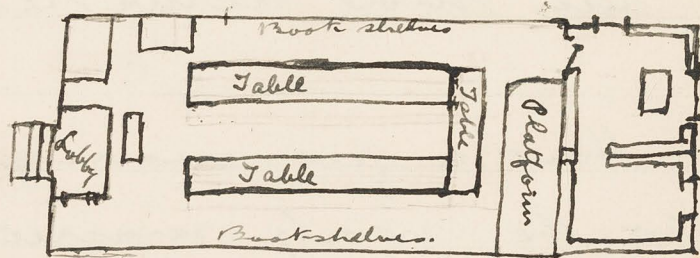 Book shelves
Table
Table
Platform
Lobby
Table
Bookshelves.